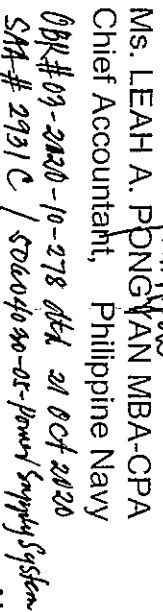 Ms. LEAH A. PONGYAN MBA-CPA
Chief Accountant, Philippine Navy
OBR# 03-2020-10-278 dtd 21 Oct 2020
SAA # 2931 C / 50604030-05-Power Supply System